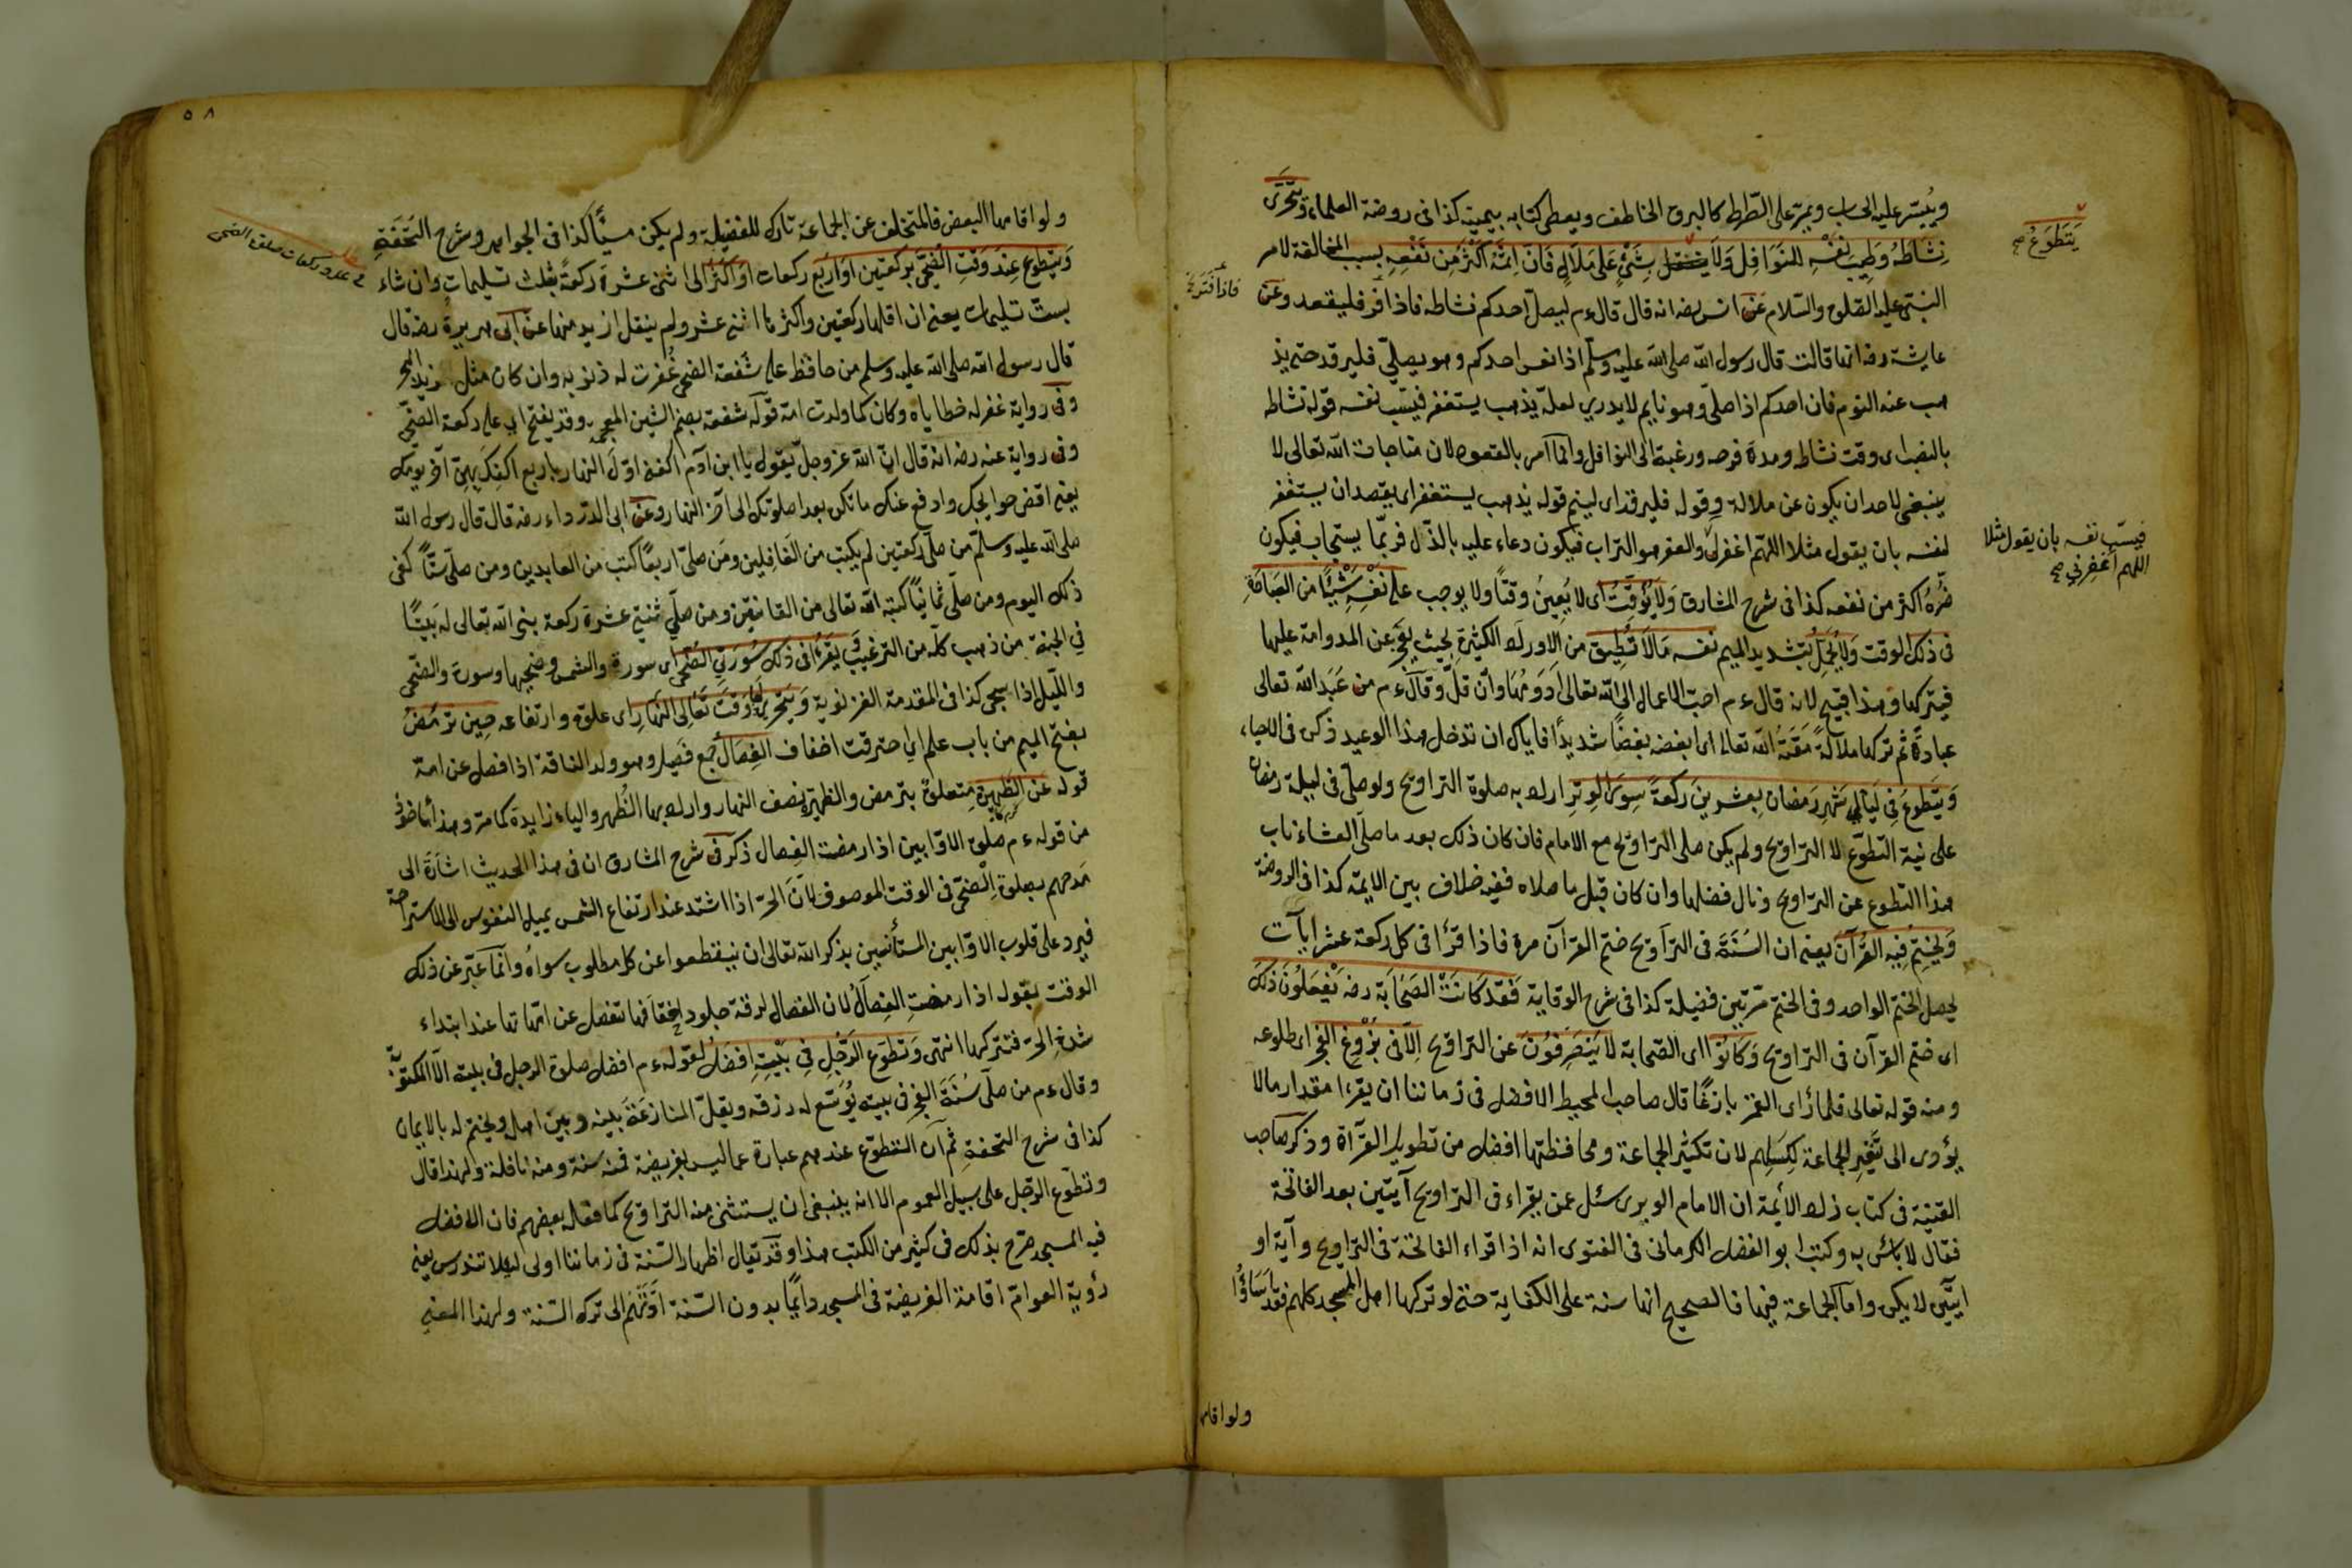 وييسّر عليه الحساب ويمرّ على الصّراط كالبرق الخاطف ويعطى كتابه بيمينه كذا فى روضة العلماء ويتحرّى
نشاطه وطيب نفسه للنوافل ولا شئ على ملال فان اثمه اكثر من نفعه بسبب المخالفة لامر
النبىّ عليه الصّلوة والسّلام عن انس رضه انه قال قال ءم ليصلّ احدكم نشاطه فاذا فتر فليقعد وعن
عايشة رضه انها قالت قال رسول الله صلى الله عليه وسلّم اذا نعس احدكم وهو يصلّي فليرقد حتى يذ
هب عنه النوم فان احدكم اذا صلّى وهو نايم لا يدري لعلّه يذهب يستغفر فيسبّ نفسه قوله نشاطه
بالنصب اى وقت نشاطه ومدة فرصه ورغبته الى النوافل وانما آمر بالقعود لان مناجات الله تعالى لا
ينبغى لاحد ان يكون عن ملالة وقوله فليرقد اى لينم قوله يذهب يستغفر اى يقصد ان يستغفر
لنفسه بان يقول مثلا اللهمّ اغفرلى والعفر هو التراب فيكون دعاء عليه بالذّل فربّما يستجاب فيكون
ضرّه اكثر من نفعه كذا فى شرح المشارق ولا يؤقّت اى لا يعيّن وقتًا ولا يوجب على نفسه شيئًا من العبادة
فى ذلك الوقت ولا يحمّل بتشديد الميم نفسه مالا تطيق من الاوراد الكثيرة بحيث يعجز عن المداومة عليها
فيتركها وهذا قبيح لانه قال ءم احبّ الاعمال الى الله تعالى ادومها وان قلّ وقال ءم من عبد الله تعالى
عبادة ثم تركها ملالة مقته الله تعالى اى ابغضه بغضًا شديدًا فاياك ان تدخل هذا الوعيد ذكر فى الاحياء
ويتطوع فى ليالي شهر رمضان بعشرين ركعة سوى الوتر اراد به صلوة التراويح ولو صلّى فى ليلة رمضان
على نية التطوّع لا التراويح ولم يكن صلى التراويح مع الامام فان كان ذلك بعد ما صلّى العشاء ناب
هذا التطوع عن التراويح ونال فضلها وان كان قبل ما صلاه ففيه خلاف بين الايمة كذا فى الروضة
ويختم فيه القرآن يعنى ان السنّة فى التراويح ختم القرآن مرة فاذا قرأ فى كل ركعة عشر ايآت
يحصل الختم الواحد وفى الختم مرّتين فضيلة كذا فى شرح الوقاية فقد كانت الصحابة رضه يفعلون ذلك
اى ختم القرآن فى التراويح وكانوا اى الصّحابة لا ينصرفون عن التراويح الاّ فى بزوغ الفجر اى طلوعه
ومنه قوله تعالى فلما رأى القمر بازغًا قال صاحب المحيط الافضل فى زماننا ان يقرءا مقدار مالا
يؤدى الى تنفير الجماعة لكسلهم لان تكثير الجماعة ومحافظتها افضل من تطويل القرآة وذكر صاحب
القنية فى كتاب زلة الأئمة ان الامام الوبرى سئل عمن يقراء فى التراويح آيتين بعد الفاتحة
فقال لا بأس به وكتب ابو الفضل الكرمانى فى الفتوى انه اذا قراء الفاتحة فى التراويح وآية او
ايتين لا يكره وامّا الجماعة فيها فالصحيح انها سنة على الكفاية حتى لو تركها اهل المسجد كلهم فقد اساؤا
ولو اقامها
يتطوع صح
فاذا فتر
فيسبّ نفسه بان يقول مثلا
اللهم اغفرلي صح
٥٨
ولو اقامها البعض فالمتخلف عن الجماعة تارك للفضيلة ولم يكن مسيئًا كذا فى الجواهر وشرح التحفة
ويتطوع عند وقت الضّحى بركعتين او اربع ركعات او اكثر الى اثنى عشرة ركعة بثلث تسليمات وان شاء
بستّ تسليمات يعنى ان اقلها ركعتين واكثرها اثنى عشر ولم ينقل ازيد منها عن ابى هريرة رضه قال
قال رسول الله صلى الله عليه وسلم من حافظ على شفعة الضحى غفرت له ذنوبه وان كان مثل زبد البحر
وفى رواية غفر له خطاياه وكان كما ولدت امه قوله شفعة بضم الشين المعجمة وقد يفتح اى على ركعة الضحى
وفى رواية عنه رضه انه قال انّ الله عز وجلّ يقول يا ابن آدم اكفنى اوّل النهار باربع اكفك بهنّ آخر يومك
يعنى اقض حوايجك وادفع عنك ما تكره بعد صلوتك الى آخر النهار وعن ابى الدرداء رضه قال قال رسول الله
صلى الله عليه وسلّم من صلّى ركعتين لم يكتب من الغافلين ومن صلّى اربعًا كتب من العابدين ومن صلّى ستًّا كفى
ذلك اليوم ومن صلّى ثمانيًا كتبه الله تعالى من القانتين ومن صلّي ثنتى عشرة ركعة بنى الله تعالى له بيتًا
فى الجنة من ذهب كلّه من الترغيب ويقرءا فى ذلك سورتي الضحى اى سورة والشمس وضحيها وسورة والضحى
والليل اذا سجى كذا فى المقدمة الغزنوية ويتحرى لها وقت تعالى النهار اى علوّه وارتفاعه حين ترمض
بفتح الميم من باب علم اي احترقت اخفاف الفصال جمع فصيل وهو ولد الناقة اذا فصل عن امه
قوله عن الظهيرة متعلق بترمض والظهيرة نصف النهار واراد بها الظهر والياء زايدة كما مر وهذا مأخوذ
من قوله ءم صلوة الاوّابين اذا رمضت الفصال ذكر فى شرح المشارق ان فى هذا الحديث اشارة الى
مدحهم بصلوة الضحى فى الوقت الموصوف لانّ الحرّ اذا اشتد عند ارتفاع الشمس يميل النفوس الى الاستراحة
فيرد على قلوب الاوّابين المستأنسين بذكر الله تعالى ان ينقطعوا عن كل مطلوب سواه وانّما عبّر عن ذلك
الوقت بقوله اذا رمضت الفصال لان الفصال لرقة جلود اخفافها تنفصل عن امّهاتها عند ابتداء
شدة الحرّ فتتركها انتهى وتطوع الرّجل فى بيته افضل لقوله ءم افضل صلوة الرجل فى بيته الاّ المكتوبة
وقال ءم من صلّى سنة الفجر فى بيته يوسّع له رزقه ويقلّ المنازعة بينه وبين اهله ويختم له بالايمان
كذا فى شرح التحفة ثم ان التطوّع عندهم عبارة عما ليس بفريضة فمنه سنة ومنه نافلة ولهذا قال
وتطوّع الرّجل على سبيل العموم الا انه ينبغى ان يستثنى منه التراويح كما فعله بعضهم فان الافضل
فيه المسجد صرّح بذلك فى كثير من الكتب هذا وقد يقال اظهار السّنة فى زماننا اولى لئلا تندرس يعنى
رؤية العوامّ اقامة الفريضة فى المسجد دايمًا بدون السّنة ادّتهم الى ترك السّنة ولهذا المعنى
عدد ركعات صلوة الضحى